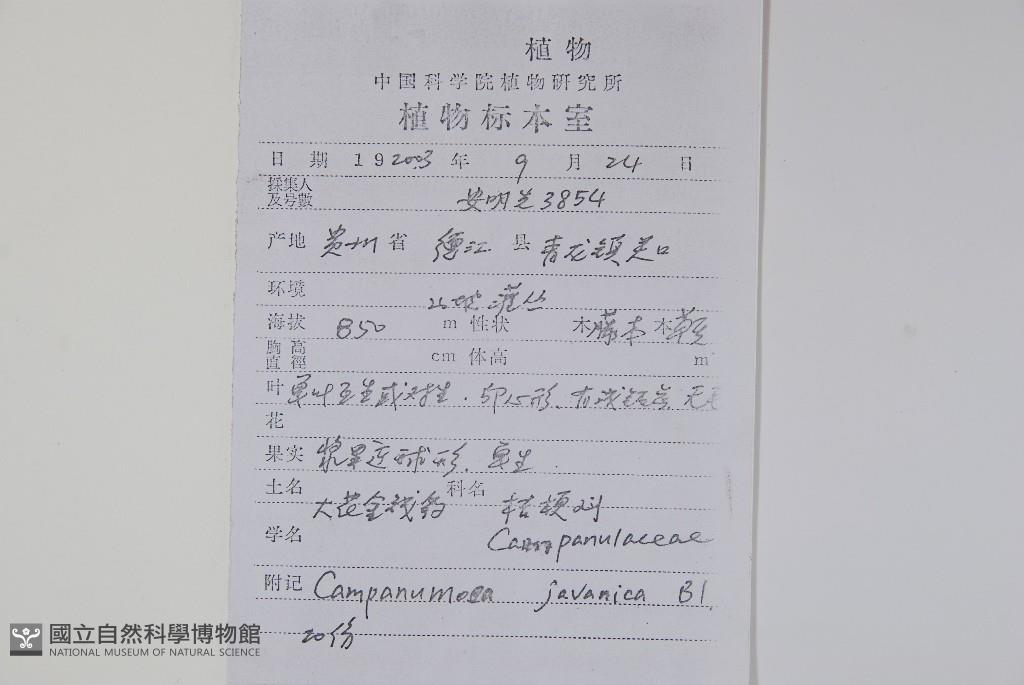 植物
中国科学院植物研究所
植物标本室
日 期 192003 年 9 月 24 日
採集人
及号數 安明先3854
产地 贵州省 德江 县 青龙镇关口
环境 山坡灌丛
海拔 850 m 性状 木藤本 本
胸高
直徑 cm 体高 m
叶 单叶互生或对生. 卵心形. 有浅钝齿. 无毛
花
果实 浆果近球形. 单生.
土名 大花金钱豹 科名 桔梗科
学名 Campanulaceae
附记 Campanumoea javanica Bl.
20份
國立自然科學博物館
NATIONAL MUSEUM OF NATURAL SCIENCE